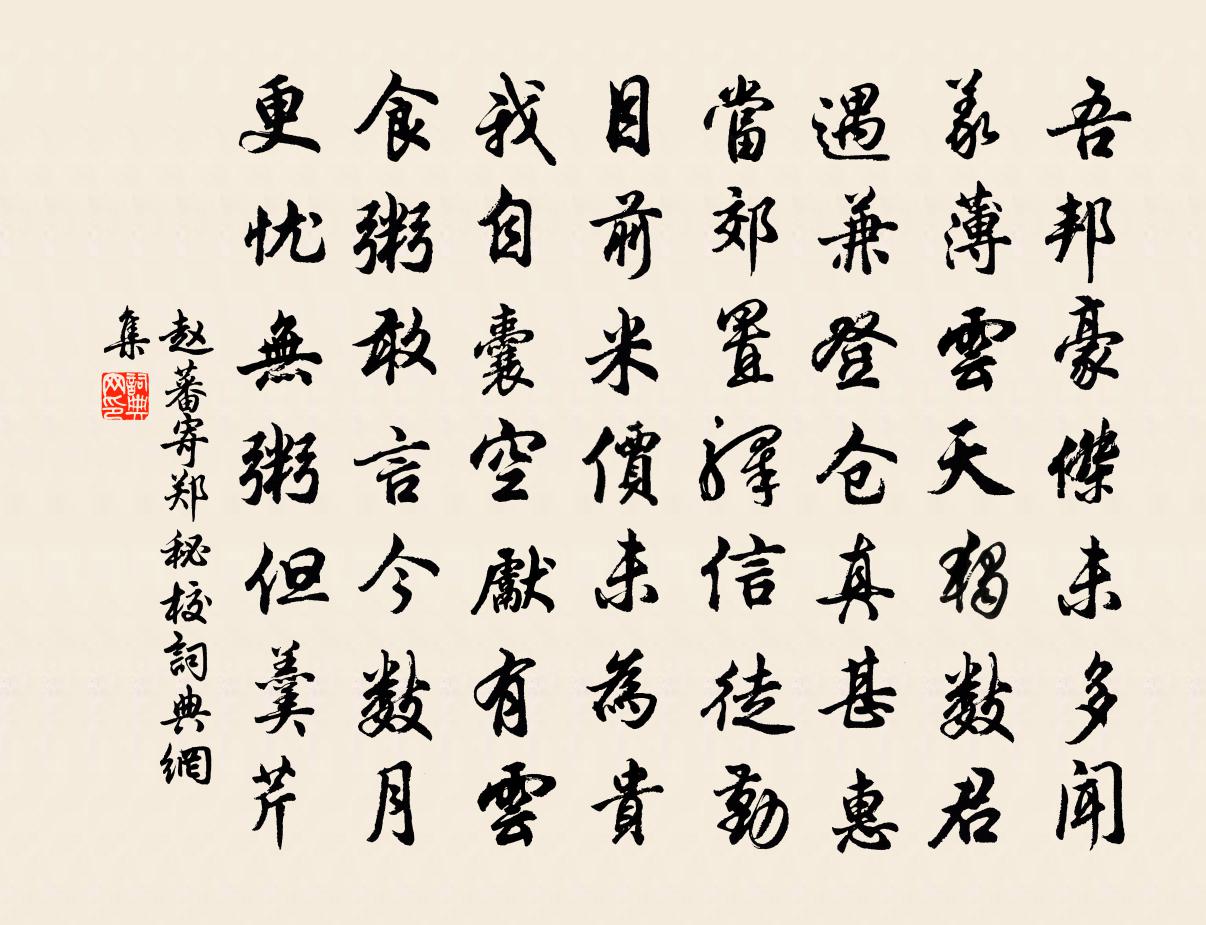 吾邦豪傑未多聞
義薄雲天獨数君
遇兼登仓真甚惠
當郊置驛信徒勤
目前米價未為貴
我自囊空獻有雲
食粥敢言今数月
更忧無粥但羹芹
赵蕃寄郑秘校詞典網
集
詞典网印